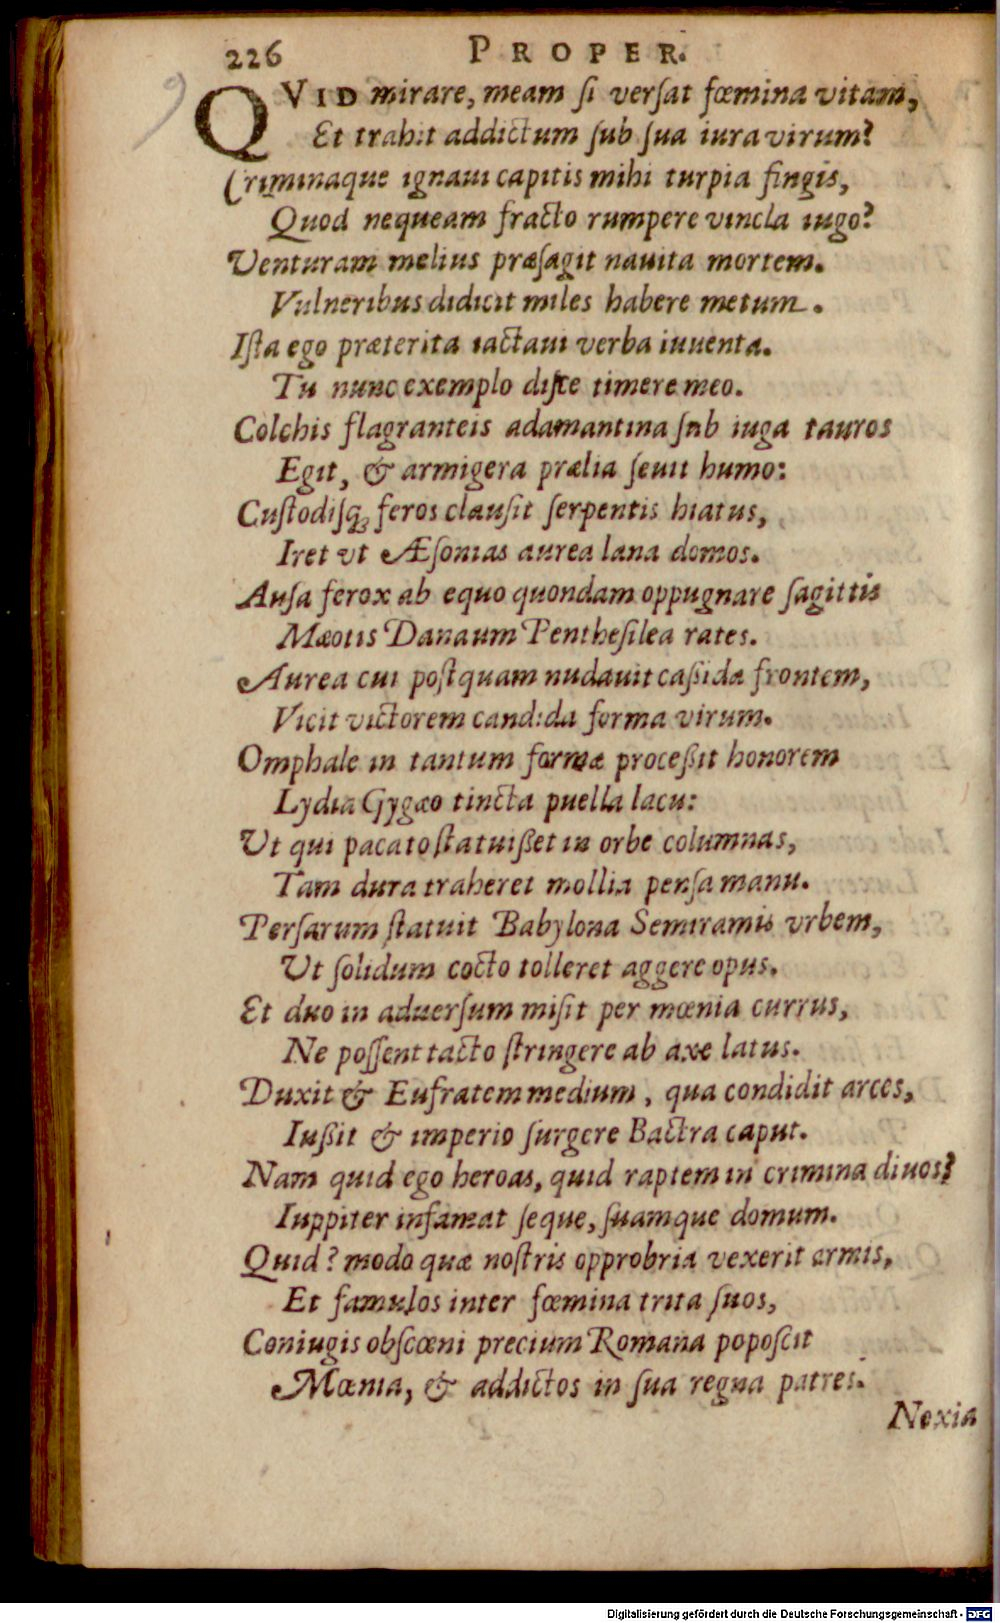 226 PROPER.
QVID mirare, meam ſi verſat fœmina vitam,
Et trahit addictum ſub ſua iura virum?
Criminaque ignaui capitis mihi turpia fingis,
Quod nequeam fracto rumpere vincla iugo?
Venturam melius præſagit nauita mortem.
Vulneribus didicit miles habere metum.
Iſta ego præterita iactaui verba iuuenta.
Tu nunc exemplo diſce timere meo.
Colchis flagranteis adamantina ſub iuga tauros
Egit, & armigera prælia ſeuit humo:
Cuſtodiſq; feros clauſit ſerpentis hiatus,
Iret vt Æſonias aurea lana domos.
Auſa ferox ab equo quondam oppugnare ſagittis
Mæotis Danaum Pentheſilea rates.
Aurea cui poſtquam nudauit caßida frontem,
Vicit victorem candida forma virum.
Omphale in tantum formæ proceßit honorem
Lydia Gygæo tincta puella lacu:
Ut qui pacato ſtatuißet in orbe columnas,
Tam dura traheret mollia penſa manu.
Perſarum ſtatuit Babylona Semiramis vrbem,
Ut ſolidum cocto tolleret aggere opus.
Et duo in aduerſum miſit per mœnia currus,
Ne poſſent tacto ſtringere ab axe latus.
Duxit & Eufratem medium, qua condidit arces,
Iußit & imperio ſurgere Bactra caput.
Nam quid ego heroas, quid raptem in crimina diuos?
Iuppiter infamat ſeque, ſuamque domum.
Quid? modo quæ noſtris opprobria vexerit armis,
Et famulos inter fœmina trita ſuos,
Coniugis obſcœni precium Romana popoſcit
Mœnia, & addictos in ſua regna patres.
Noxia
Digitalisierung gefördert durch die Deutsche Forschungsgemeinschaft - DFG